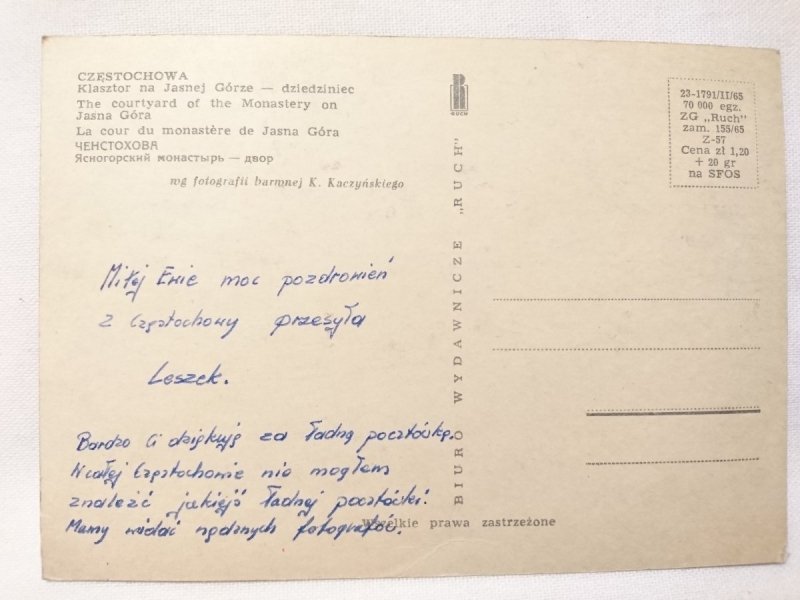 CZĘSTOCHOWA
Klasztor na Jasnej Górze — dziedziniec
The courtyard of the Monastery on
Jasna Góra
La cour du monastère de Jasna Góra
ЧЕНСТОХОВА
Ясногорский монастырь — двор
wg fotografii barwnej K. Kaczyńskiego
RUCH
23-1791/II/65
70 000 egz.
ZG „Ruch"
zam. 155/65
Z-57
Cena zł 1,20
+ 20 gr
na SFOS
BIURO WYDAWNICZE „RUCH"
Miłej Ewie moc pozdrowień
z Częstochowy przesyła
Leszek.
Bardzo Ci dziękuję za ładną pocztówkę.
W całej Częstochowie nie mogłem
znaleźć jakiejś ładnej pocztówki.
Mamy widać nędznych fotografów.
Wszelkie prawa zastrzeżone